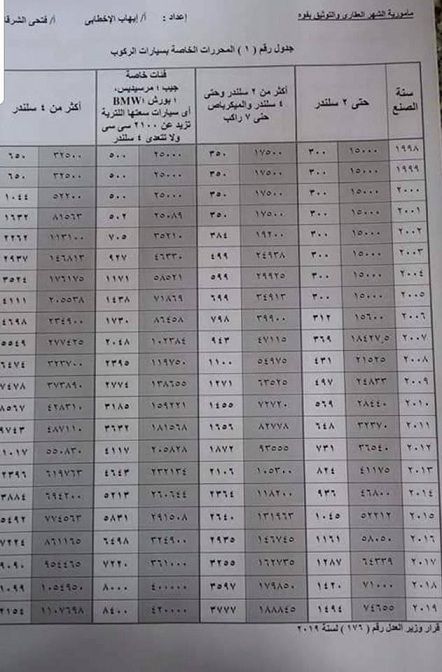 مأمورية الشهر العقارى والتوثيق بفوه إعداد : أ/ إيهاب الإخطابى أ/ فتحى الشرقا
جدول رقم ( ١ ) المحررات الخاصة بسيارات الركوب
سنة الصنع | حتى ٢ سلندر | أكثر من ٢ سلندر وحتى ٤ سلندر والميكروباص حتى ٧ راكب | فئات خاصة جيب ، مرسيدس، ، بورش ،BMW أى سيارات سعتها اللترية تزيد عن ٢١٠٠ سى سى ولا تتعدى ٤ سلندر | أكثر من ٤ سلندر
١٩٩٨ ١٥٠٠٠ ٣٠٠ ١٧٥٠٠ ٣٥٠ ٢٥٠٠٠ ٥٠٠ ٣٢٥٠٠ ٦٥٠
١٩٩٩ ١٥٠٠٠ ٣٠٠ ١٧٥٠٠ ٣٥٠ ٢٥٠٠٠ ٥٠٠ ٣٢٥٠٠ ٦٥٠
٢٠٠٠ ١٥٠٠٠ ٣٠٠ ١٧٥٠٠ ٣٥٠ ٢٥٠٠٠ ٥٠٠ ٥٢٢٠٠ ١٠٤٤
٢٠٠١ ١٥٠٠٠ ٣٠٠ ١٧٥٠٠ ٣٥٠ ٢٥٠٨٩ ٥٠٢ ٨١٥٦٣ ١٦٣٢
٢٠٠٢ ١٥٠٠٠ ٣٠٠ ١٩٢٠٠ ٣٨٤ ٣٥٢١٠ ٧٠٥ ١١٣١٠٠ ٢٢٦٢
٢٠٠٣ ١٥٠٠٠ ٣٠٠ ٢٤٩٣٨ ٤٩٩ ٤٦٣٣٠ ٩٢٧ ١٤٦٨١٣ ٢٩٣٧
٢٠٠٤ ١٥٠٠٠ ٣٠٠ ٢٩٩٢٥ ٥٩٩ ٥٨٥٢١ ١١٧١ ١٧٦١٧٥ ٣٥٢٤
٢٠٠٥ ١٥٠٠٠ ٣٠٠ ٣٤٩١٣ ٦٩٩ ٧١٨٦٩ ١٤٣٨ ٢٠٥٥٣٨ ٤١١١
٢٠٠٦ ١٥٦٠٠ ٣١٢ ٣٩٩٠٠ ٧٩٨ ٨٦٤٥٨ ١٧٣٠ ٢٣٤٩٠٠ ٤٦٩٨
٢٠٠٧ ١٨٤٢٧,٥ ٣٦٩ ٤٧١١٥ ٩٤٣ ١٠٢٣٨٤ ٢٠٤٨ ٢٧٧٤٢٥ ٥٥٤٩
٢٠٠٨ ٢١٥٢٥ ٤٣١ ٥٤٩٧٥ ١١٠٠ ١١٩٧٥٠ ٢٣٩٥ ٣٢٣٧٠٠ ٦٤٧٤
٢٠٠٩ ٢٤٨٣٣ ٤٩٧ ٦٣٥٢٥ ١٢٧١ ١٣٨٦٥٥ ٢٧٧٤ ٣٧٣٨٩٠ ٧٤٧٨
٢٠١٠ ٢٨٤٤٠ ٥٦٩ ٧٢٧٢٠ ١٤٥٥ ١٥٩٢٢١ ٣١٨٥ ٤٢٨٣١٠ ٨٥٦٧
٢٠١١ ٣٢٣٧٠ ٦٤٨ ٨٢٧٧٨ ١٦٥٦ ١٨١٥٦٨ ٣٦٣٢ ٤٨٧١١٠ ٩٧٤٣
٢٠١٢ ٣٦٥٤٠ ٧٣١ ٩٣٥٥٥ ١٨٧٢ ٢٠٥٨٢٨ ٤١١٧ ٥٥٠٨٣٠ ١٠١٧
٢٠١٣ ٤١١٧٥ ٨٢٤ ١٠٥٣٠٠ ٢١٠٦ ٢٣٢١٣٤ ٤٦٤٣ ٦١٩٧٦٣ ٢٣٩٦
٢٠١٤ ٤٦٨٠٠ ٩٣٦ ١١٨٢٠٠ ٢٣٦٤ ٢٦٠٦٤٤ ٥٢١٣ ٦٩٤٢٠٠ ٣٨٨٤
٢٠١٥ ٥٢٢١٢ ١٠٤٥ ١٣١٩٦٣ ٢٦٤٠ ٢٩١٥٠٨ ٥٨٣١ ٧٧٤٥٦٣ ٥٤٩٢
٢٠١٦ ٥٨٠٥٠ ١١٦١ ١٤٦٧٤٥ ٢٩٣٥ ٣٢٤٩٠٠ ٦٤٩٨ ٨٦١١٦٥ ٧٢٢٤
٢٠١٧ ٦٤٣٣٩ ١٢٨٧ ١٦٢٧٣٥ ٣٢٥٥ ٣٦١٠٠٠ ٧٢٢٠ ٩٥٤٤٦٠ ٩٠٩٠
٢٠١٨ ٧١٠٠٠ ١٤٢٠ ١٧٩٨٥٠ ٣٥٩٧ ٤٠٠٠٠٠ ٨٠٠٠ ١٠٥٤٩٥٠ ١٠٩٩
٢٠١٩ ٧٤٦٥٥ ١٤٩٤ ١٨٨٨٤٥ ٣٧٧٧ ٤٢٠٠٠٠ ٨٤٠٠ ١١٠٧٦٩٨ ٢١٥٤
قرار وزير العدل رقم ( ١٧٦ ) لسنة ٢٠١٩